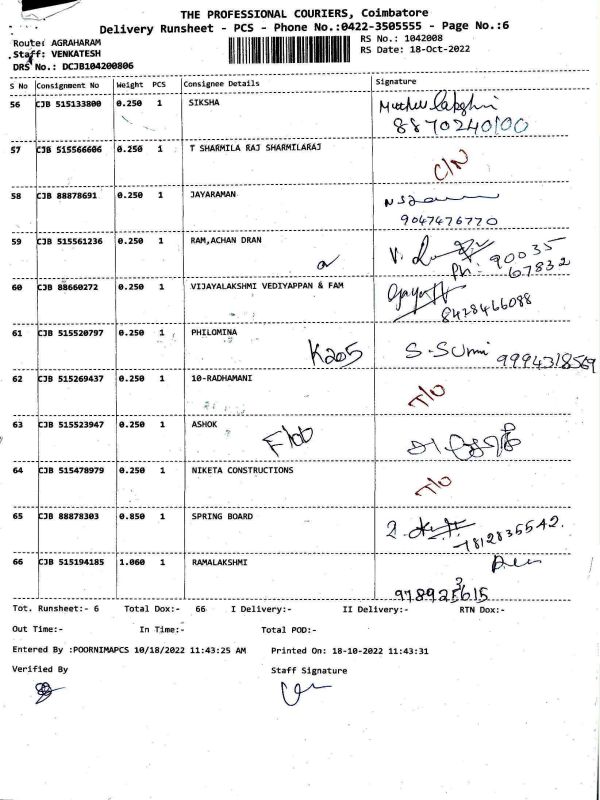 THE PROFESSIONAL COURIERS, Coimbatore
Delivery Runsheet - PCS - Phone No.:0422-3505555 - Page No.:6
Route: AGRAHARAM RS No.: 1042008
Staff: VENKATESH RS Date: 18-Oct-2022
DRS No.: DCJB104200806
S No Consignment No Weight PCS Consignee Details Signature
56 CJB 515133800 0.250 1 SIKSHA
8870240100
57 CJB 515566606 0.250 1 T SHARMILA RAJ SHARMILARAJ C/N
58 CJB 88878691 0.250 1 JAYARAMAN
9047476770
59 CJB 515561236 0.250 1 RAM,ACHAN DRAN
Ph: 90035
67832
60 CJB 88660272 0.250 1 VIJAYALAKSHMI VEDIYAPPAN & FAM
8428466088
61 CJB 515520797 0.250 1 PHILOMINA
K205 S. Sumi 9994318569
62 CJB 515269437 0.250 1 10-RADHAMANI T/O
63 CJB 515523947 0.250 1 ASHOK
64 CJB 515478979 0.250 1 NIKETA CONSTRUCTIONS T/O
65 CJB 88878303 0.850 1 SPRING BOARD
7812835542.
66 CJB 515194185 1.060 1 RAMALAKSHMI
Tot. Runsheet:- 6 Total Dox:- 66 I Delivery:- II Delivery:- RTN Dox:-
Out Time:- In Time:- Total POD:-
Entered By :POORNIMAPCS 10/18/2022 11:43:25 AM Printed On: 18-10-2022 11:43:31
Verified By Staff Signature